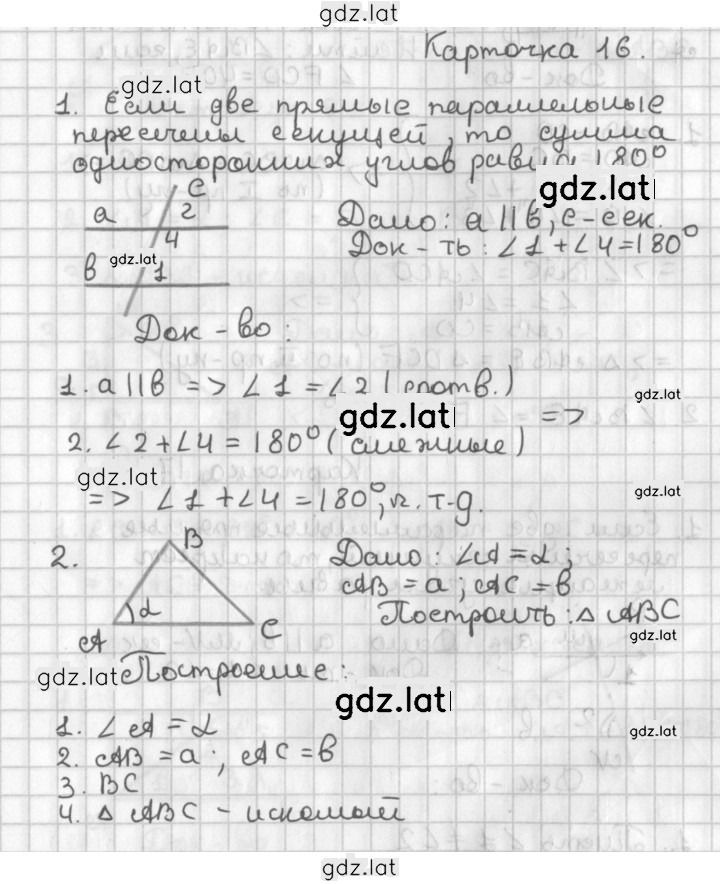 gdz.lat
Карточка 16.
gdz.lat
1. Если две прямые параллельные
пересечены секущей, то сумма
односторонних углов равна 180°
gdz.lat
c
a 2
4
b gdz.lat 1
Дано: a || b, c - сек.
Док-ть: ∠1 + ∠4 = 180°
Док-во:
1. a || b => ∠1 = ∠2 (соотв.)
gdz.lat
gdz.lat
=>
2. ∠2 + ∠4 = 180° (смежные)
gdz.lat
gdz.lat
=> ∠1 + ∠4 = 180°, ч. т. д.
2.
B
α
A
C
Дано: ∠A = α;
AB = a; AC = b
Построить: △ ABC
gdz.lat
gdz.lat
Построение:
gdz.lat
gdz.lat
1. ∠A = α
2. AB = a; AC = b
3. BC
4. △ ABC - искомый
gdz.lat